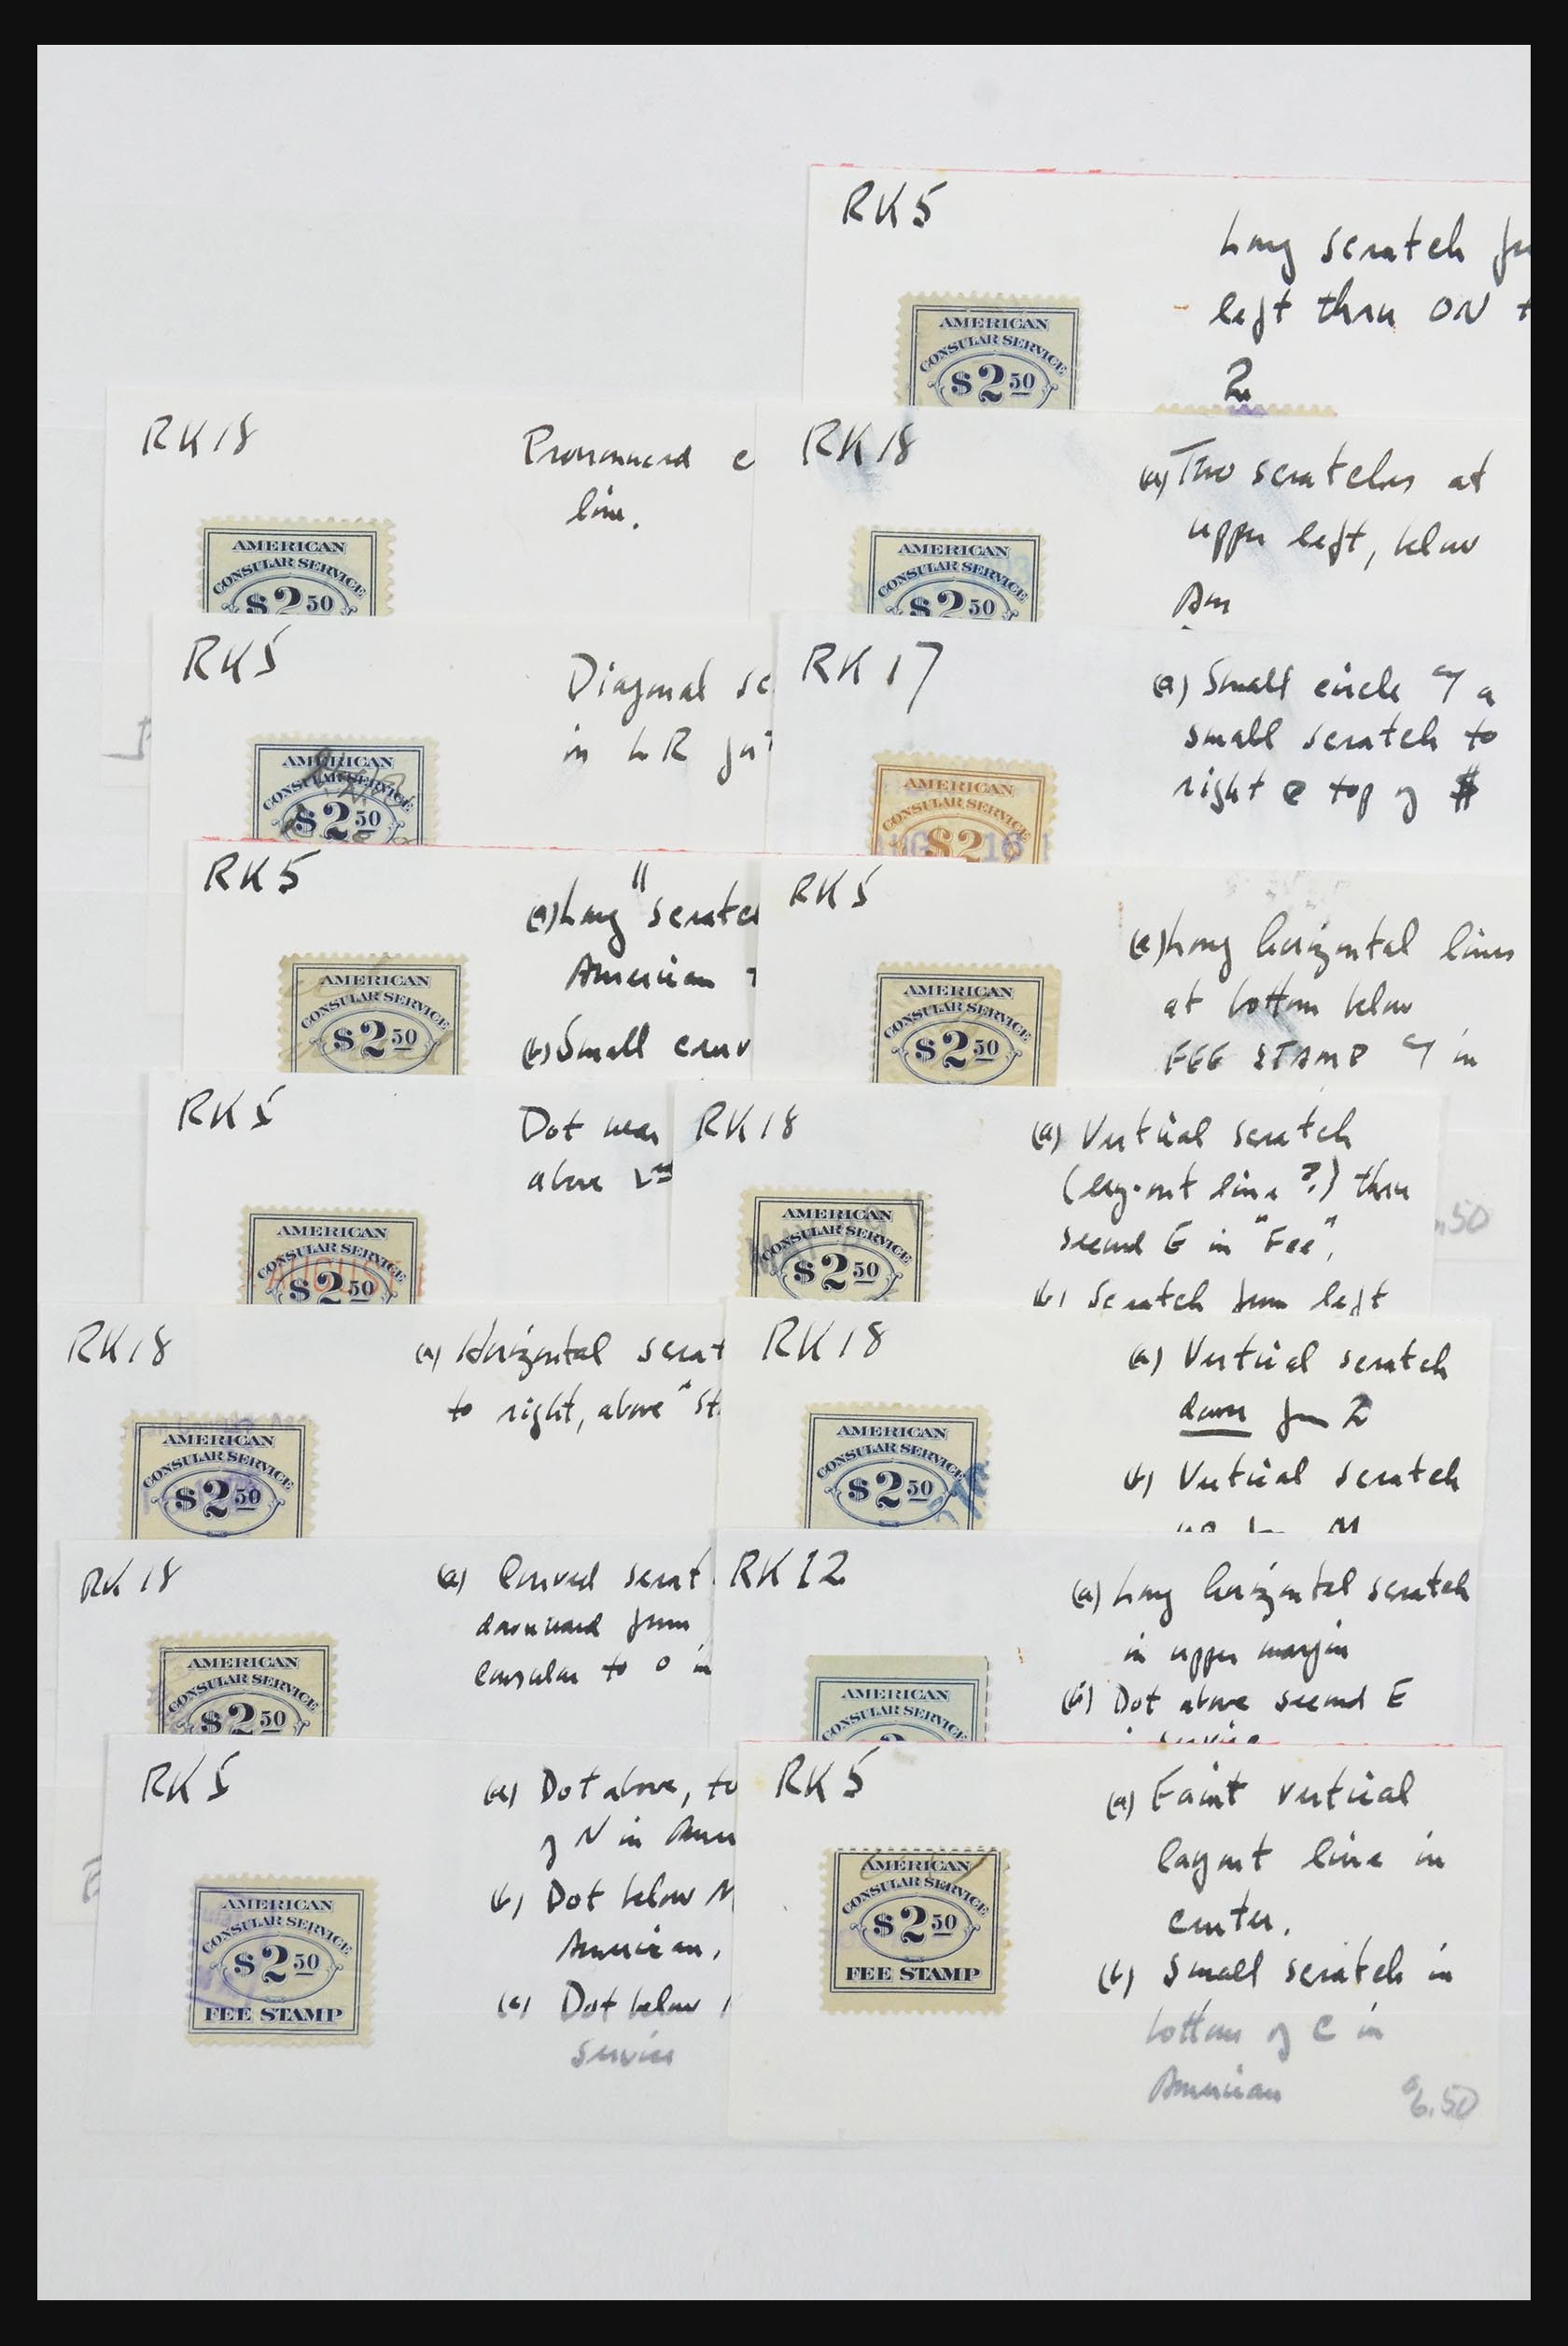 RK5
Long scratch
left thru ON
2
AMERICAN
CONSULAR SERVICE
$2 50
RK18
Pronounced
line.
AMERICAN
CONSULAR SERVICE
$2 50
RK18
(a) Two scratches at
upper left, below
Am
AMERICAN
CONSULAR SERVICE
$2 50
RK5
Diagonal sc
in LR
AMERICAN
CONSULAR SERVICE
$2 50
RK17
(a) Small circle a
small scratch to
right @ top of $
AMERICAN
CONSULAR SERVICE
$2
AUG 16
RK5
(a) Long "scratch
American
(b) Small curv
AMERICAN
CONSULAR SERVICE
$2 50
RK5
(a) Long horizontal lines
at bottom below
FEE STAMP in
AMERICAN
CONSULAR SERVICE
$2 50
RK5
Dot near
above
AMERICAN
CONSULAR SERVICE
$2 50
AUGUST
RK18
(a) Vertical scratch
(lay-out line?) thru
second E in "Fee",
(b) Scratch from left
AMERICAN
CONSULAR SERVICE
$2 50
.50
RK18
(a) Horizontal scrat
to right, above "St
AMERICAN
CONSULAR SERVICE
$2 50
RK18
(a) Vertical scratch
down from 2
(b) Vertical scratch
AMERICAN
CONSULAR SERVICE
$2 50
RK18
(a) Curved scrat
downward from
Consular to O in
AMERICAN
CONSULAR SERVICE
$2 50
RK12
(a) Long horizontal scratch
in upper margin
(b) Dot above second E
in service
AMERICAN
CONSULAR SERVICE
RK5
(a) Dot above, to
of N in Amer
(b) Dot below M
American,
(c) Dot below
Service
AMERICAN
CONSULAR SERVICE
$2 50
FEE STAMP
RK5
(a) Faint vertical
layout line in
center.
(b) Small scratch in
bottom of C in
American
6.50
AMERICAN
CONSULAR SERVICE
$2 50
FEE STAMP